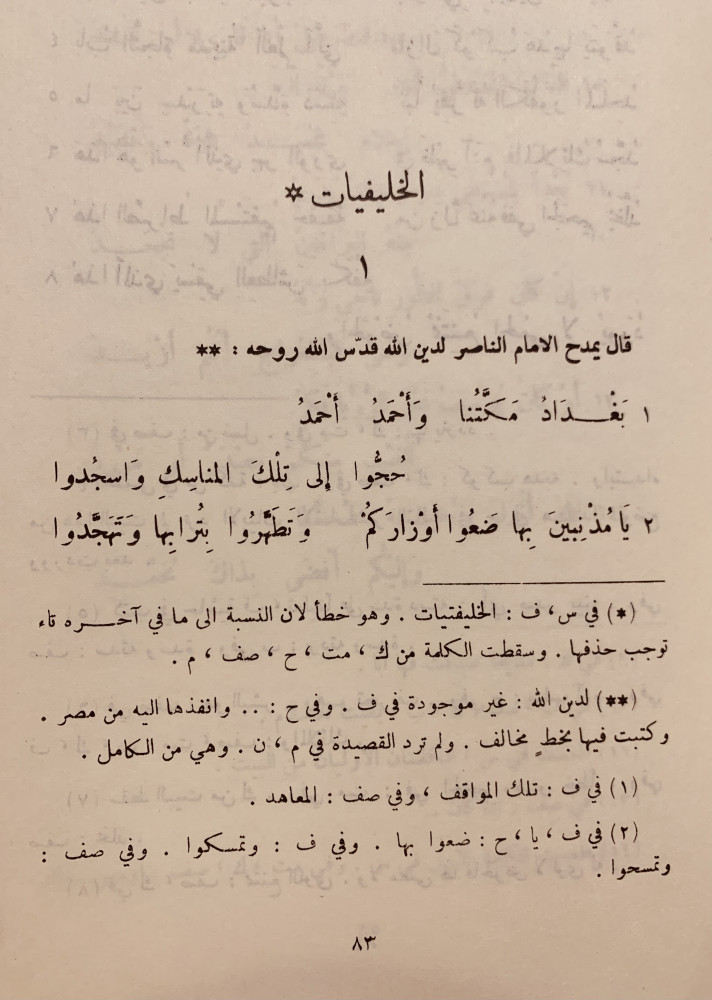 الخليفيات *
١
قال يمدح الامام الناصر لدين الله قدّس الله روحه : **
١ بَغْــدَادُ مَكَّتُنا وَأَحْمَدُ أَحْمَدُ
حُجُّوا إِلى تِلْكَ المناسِكِ وَاسجُدوا
٢ يَا مُذْنِبينَ بِها ضَعُوا أَوْزارَكُمْ وَتَطَهَّرُوا بِتُرابِها وَتَهَجَّدُوا
(*) في س، ف : الخليفتيات . وهو خطأ لان النسبة الى ما في آخـــره تاء
توجب حذفها . وسقطت الكلمة من ك ، مت ، ح ، صف ، م .
(**) لدين الله : غير موجودة في ف . وفي ح : .. وانفذها اليه من مصر .
وكتبت فيها بخطٍ مخالف . ولم ترد القصيدة في م ، ن . وهي من الكامل .
(١) في ف : تلك المواقف ، وفي صف : المعاهد .
(٢) في ف ، يا ، ح : ضعوا بها . وفي ف : وتمسكوا . وفي صف :
وتمسحوا .
٨٣